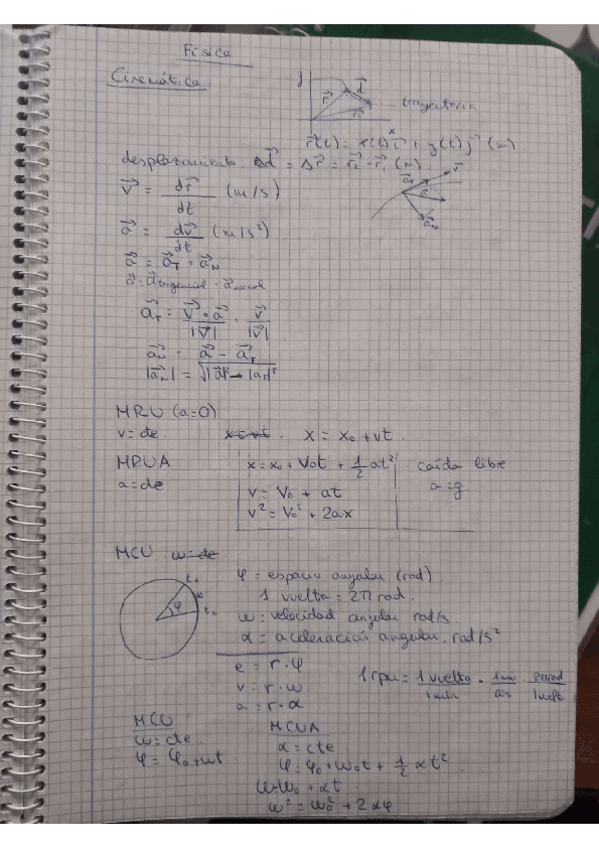 Física
Cinemática
y
r⃗
d⃗
r⃗
trayectoria
x
r⃗(t) = x(t) i⃗ + y(t) j⃗ (m)
desplazamiento. Δd⃗ = Δr⃗ = r⃗₂ - r⃗₁ (m)
v⃗ = dr⃗/dt (m/s)
v⃗
a⃗T
a⃗
a⃗N
a⃗ = dv⃗/dt (m/s²)
a⃗ = a⃗T + a⃗N
a⃗ = a⃗tangencial + a⃗normal
a⃗T = v⃗ · a⃗/|v⃗| · v⃗/|v⃗|
a⃗N = a⃗ - a⃗T
|a⃗N| = √|a⃗|² - |aT|²
MRU (a=0)
v = cte. x = vt. x = x₀ + vt.
MRUA x = x₀ + v₀t + 1/2 at² caída libre
a = cte a = g
v = v₀ + at
v² = v₀² + 2ax
MCU w = cte
t₁
e
φ
t₂
φ = espacio angular (rad)
1 vuelta = 2π rad.
w = velocidad angular rad/s
α = aceleración angular. rad/s²
e = r · φ
v = r · w
a = r · α
1 rpm = 1 vuelta/1 min · 1 min/60s · 2π rad/1 vuelt
MCU MCUA
w = cte α = cte
φ = φ₀ + wt φ = φ₀ + w₀t + 1/2 αt²
w = w₀ + αt
w² = w₀² + 2αφ